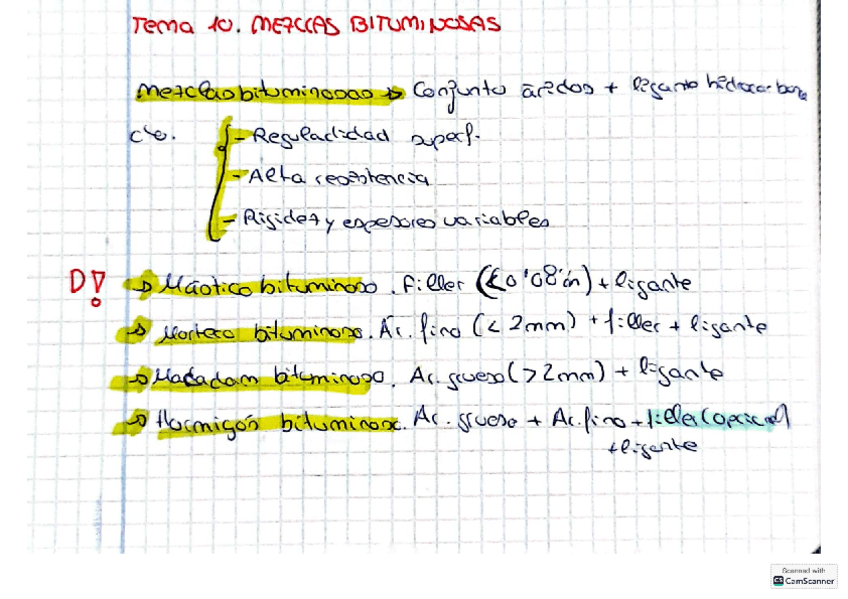 Tema 10. MEZCLAS BITUMINOSAS
Mezclas bituminosas → Conjunto áridos + ligante hidrocarbona
do.
- Regularidad superf.
- Alta resistencia
- Rigidez y espesores variables
D!
→ Mástico bituminoso. Filler (≤0'08 ) + ligante
→ Mortero bituminoso. Ár. fino (< 2mm) + filler + ligante
→ Macadam bituminoso. Ar. grueso (>2mm) + ligante
→ Hormigón bituminoso. Ar. grueso + Ar. fino + filler (opcional)
+ ligante
Scanned with
CS CamScanner